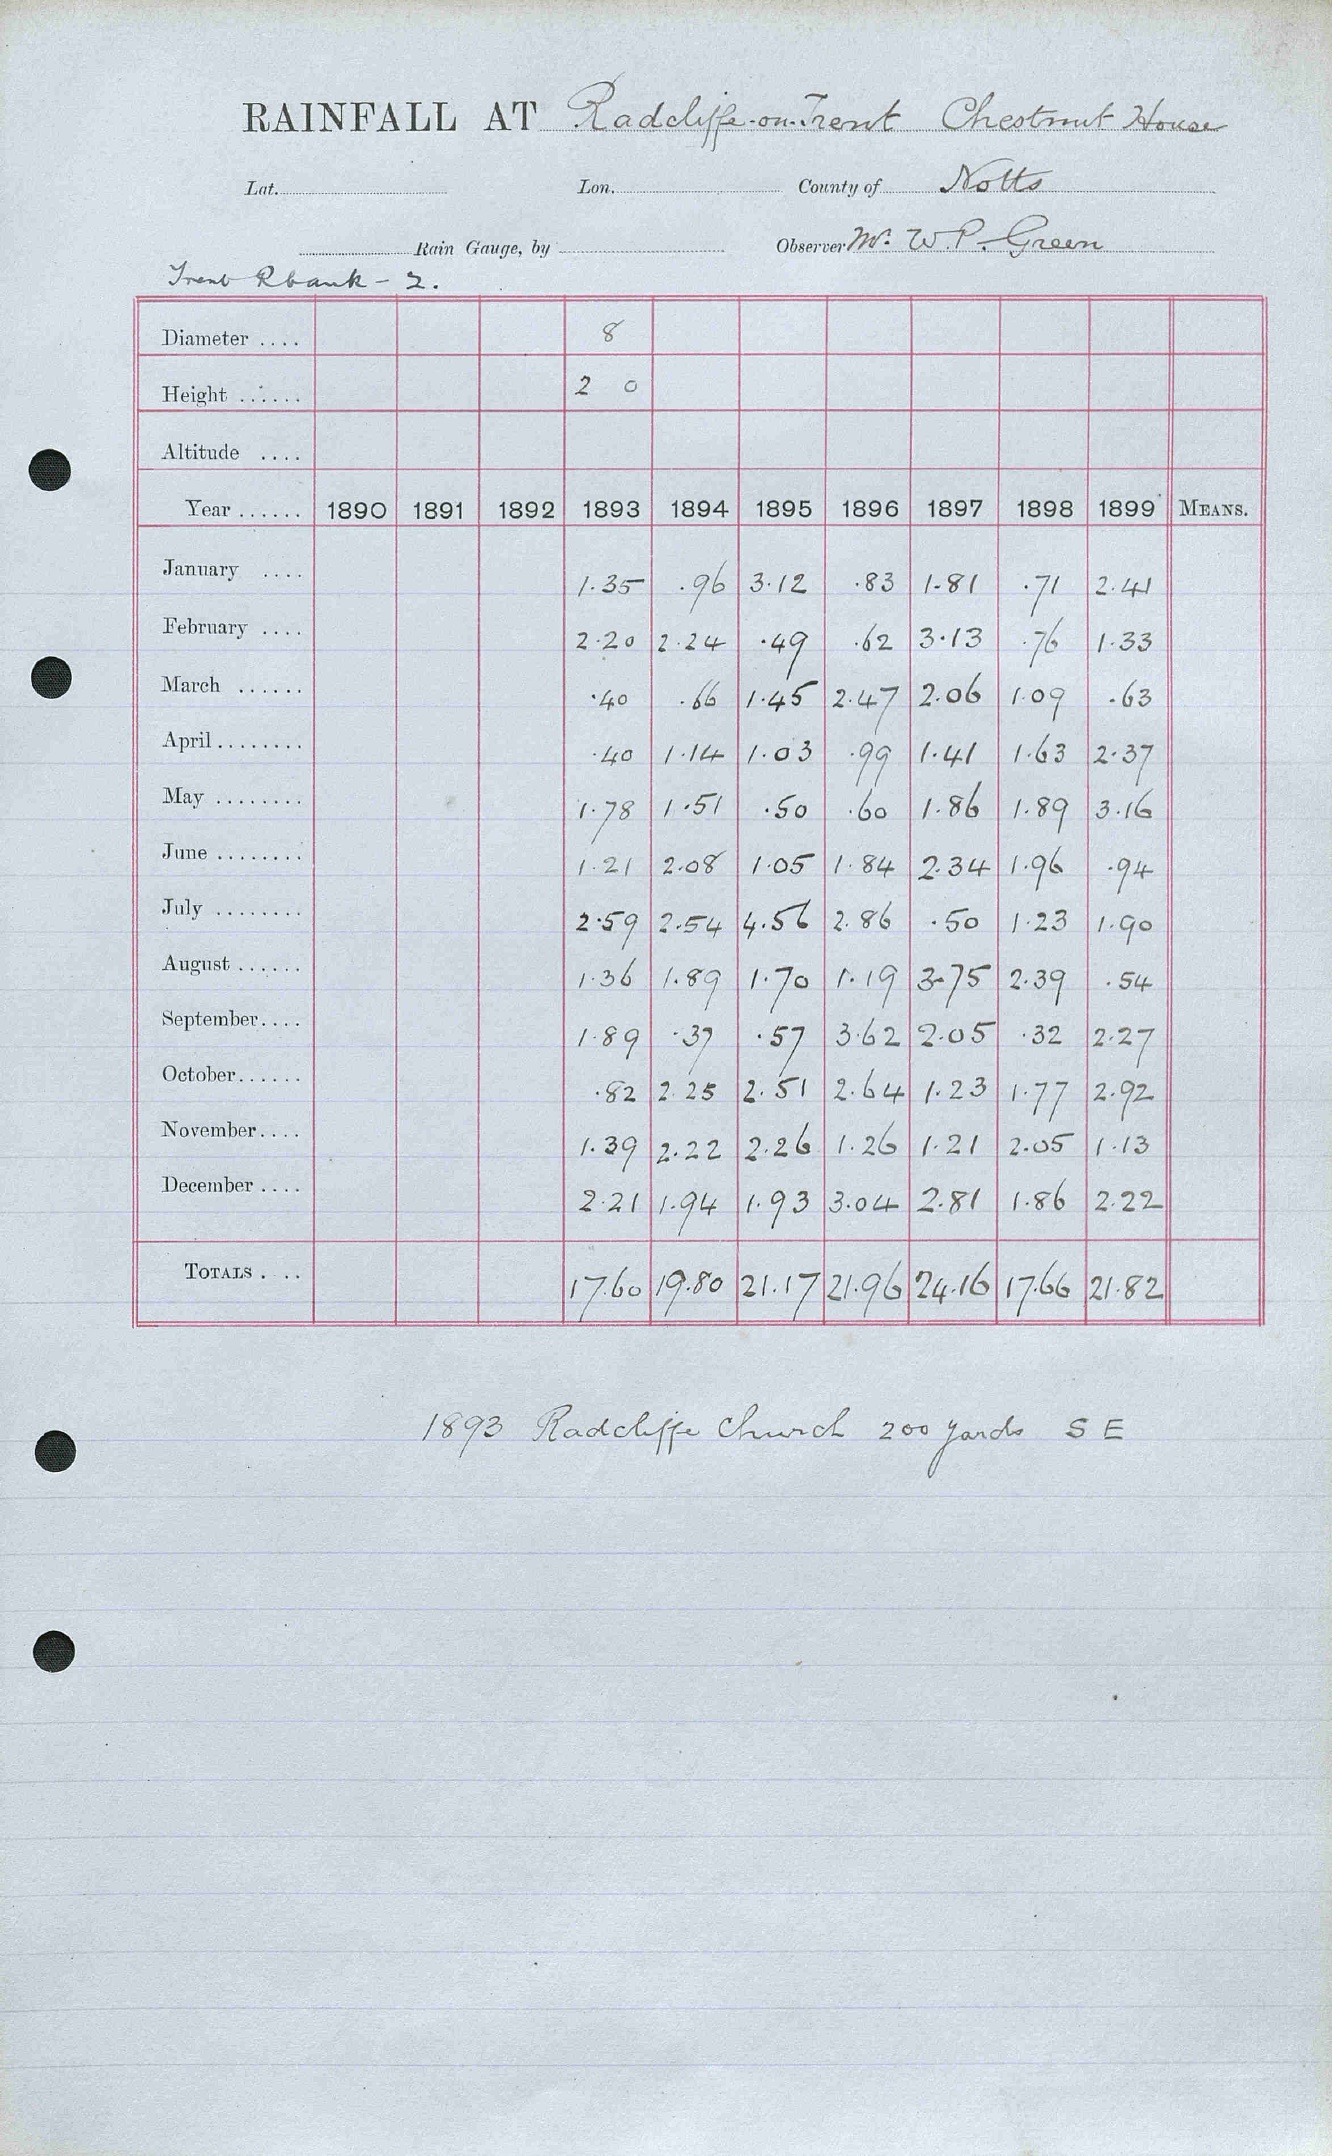 RAINFALL AT Radcliffe-on-Trent Chestnut House
Lat. Lon. County of Notts
Rain Gauge, by Observer Mr. W. P. Green
Trent R bank - 2.
Diameter .... 8
Height ...... 2 0
Altitude ....
Year ...... 1890 1891 1892 1893 1894 1895 1896 1897 1898 1899 MEANS.
January .... 1.35 .96 3.12 .83 1.81 .71 2.41
February .... 2.20 2.24 .49 .62 3.13 .76 1.33
March ...... .40 .66 1.45 2.47 2.06 1.09 .63
April ........ .40 1.14 1.03 .99 1.41 1.63 2.37
May ........ 1.78 1.51 .50 .60 1.86 1.89 3.16
June ........ 1.21 2.08 1.05 1.84 2.34 1.96 .94
July ........ 2.59 2.54 4.56 2.86 .50 1.23 1.90
August ...... 1.36 1.89 1.70 1.19 3.75 2.39 .54
September.... 1.89 .37 .57 3.62 2.05 .32 2.27
October...... .82 2.25 2.51 2.64 1.23 1.77 2.92
November.... 1.39 2.22 2.26 1.26 1.21 2.05 1.13
December .... 2.21 1.94 1.93 3.04 2.81 1.86 2.22
TOTALS . .. 17.60 19.80 21.17 21.96 24.16 17.66 21.82
1893 Radcliffe Church 200 yards S E